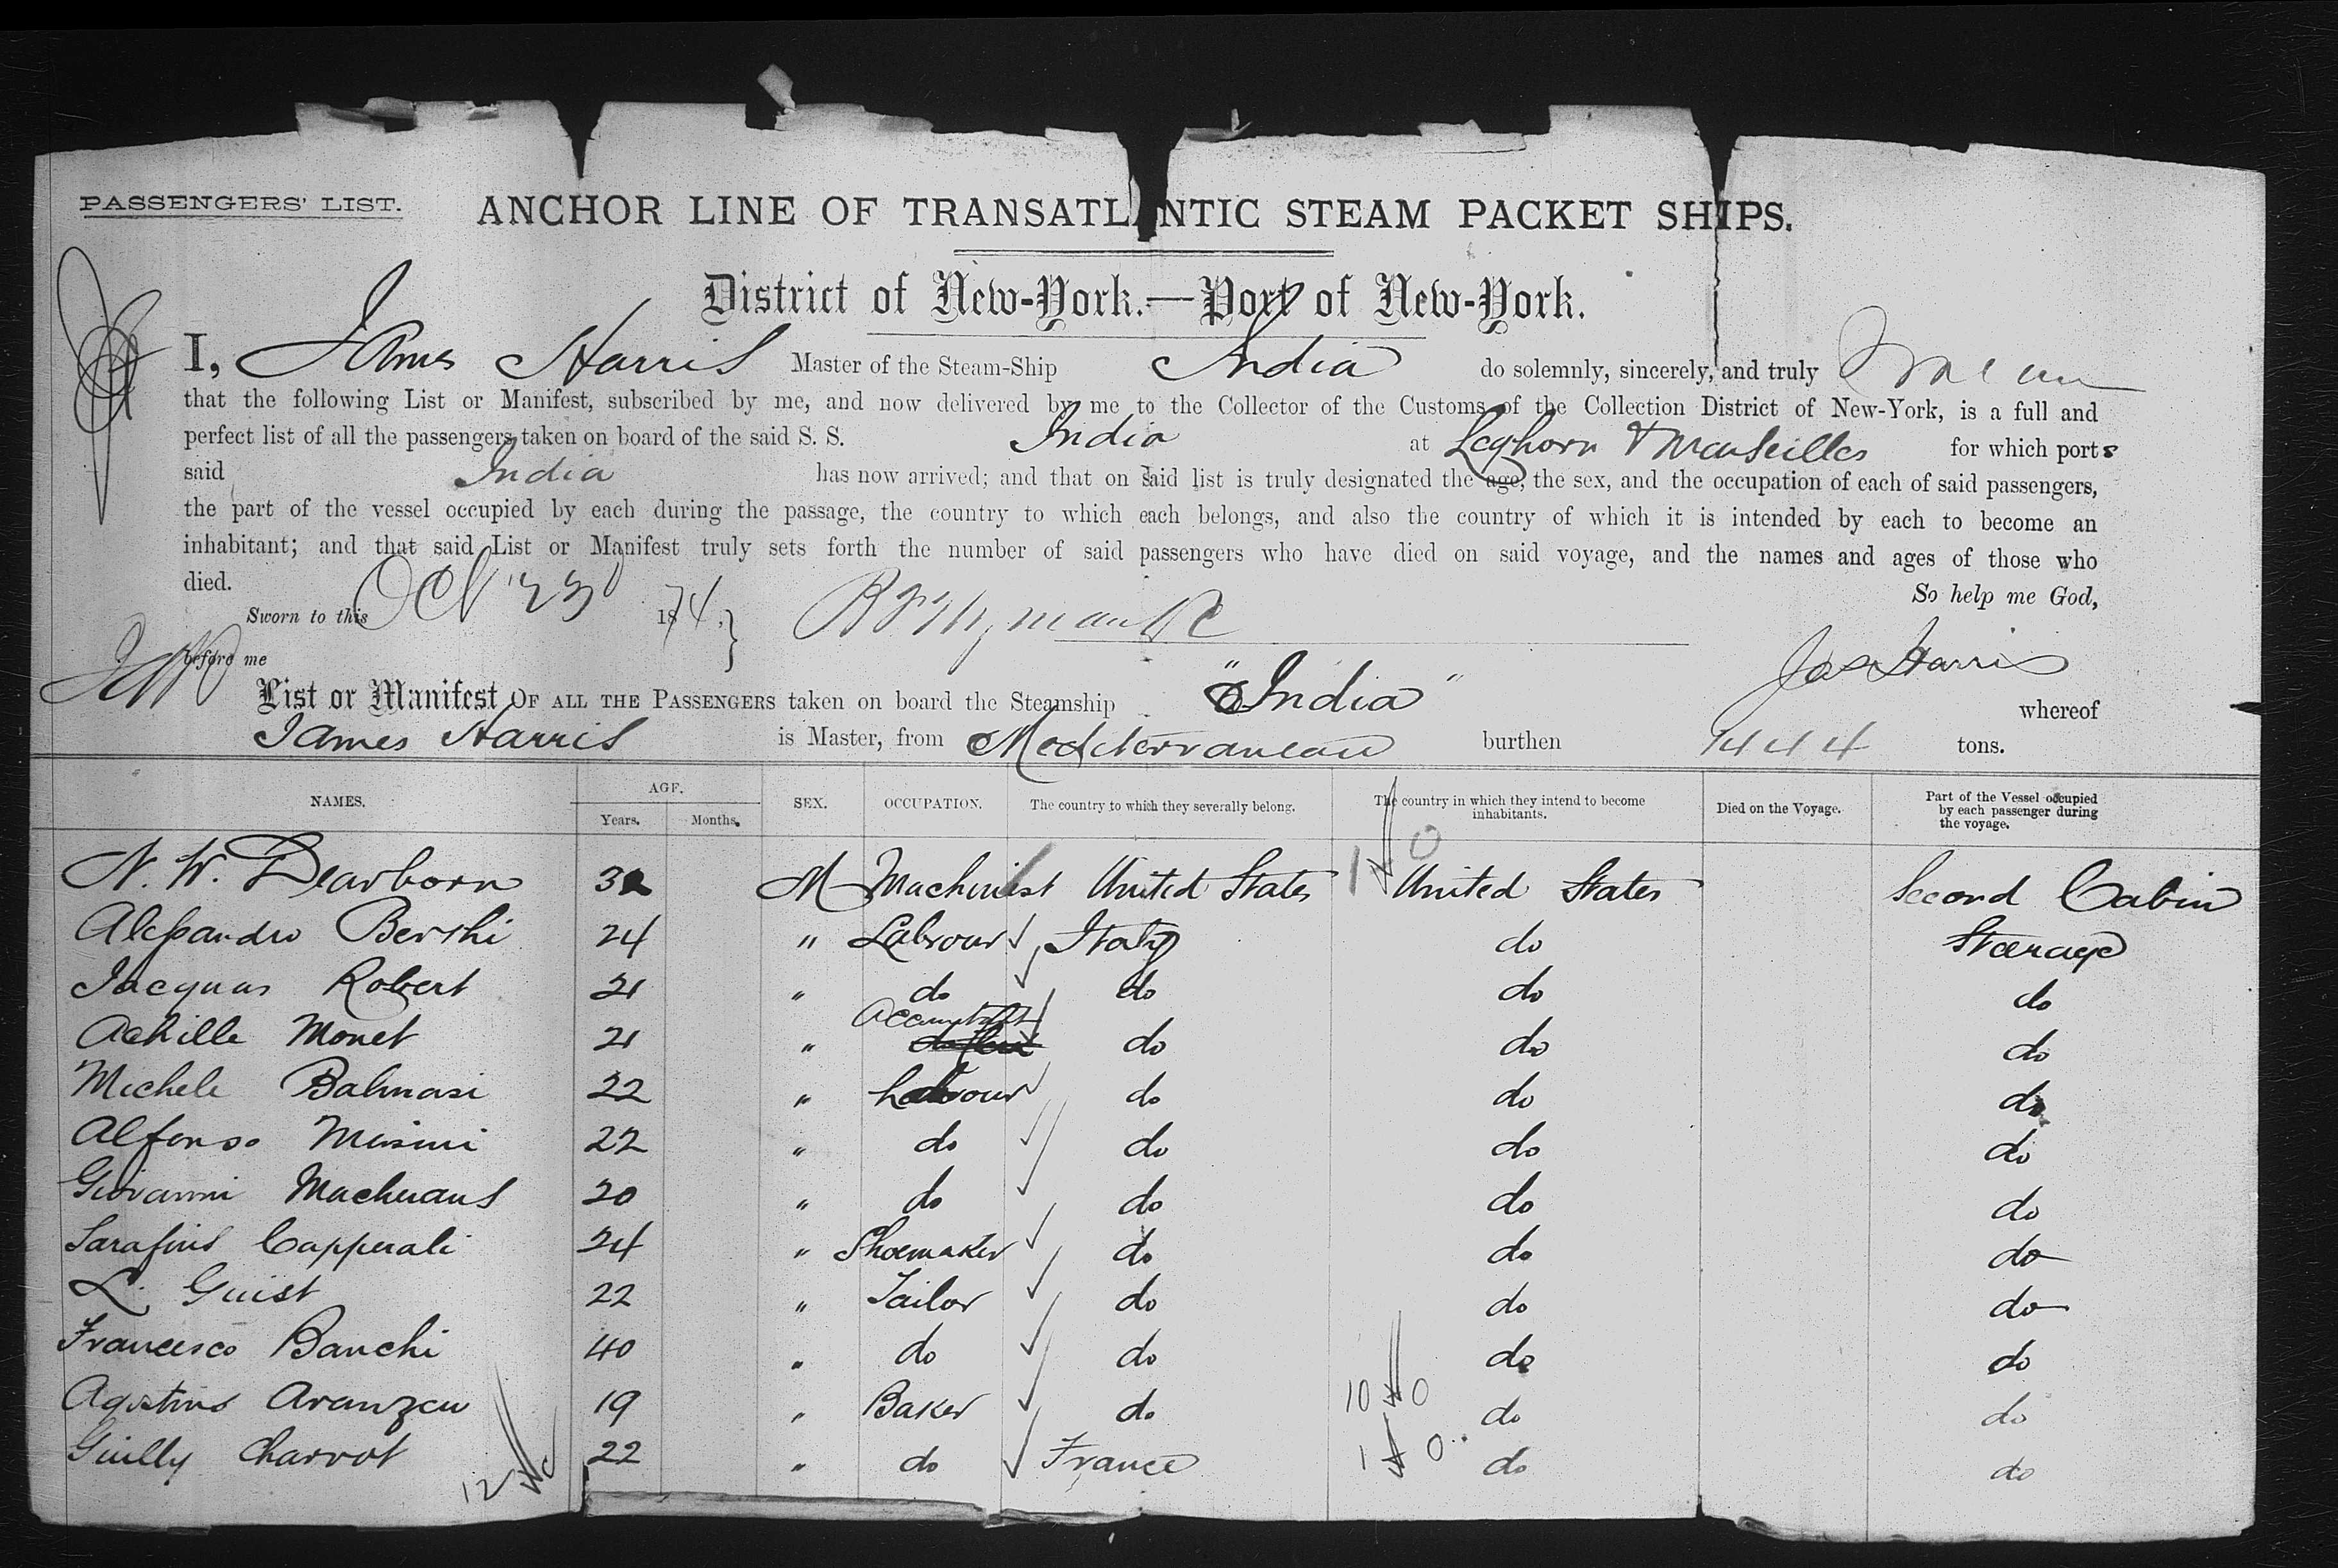 PASSENGERS' LIST. ANCHOR LINE OF TRANSATLANTIC STEAM PACKET SHIPS.
District of New-York.—Port of New-York.
I, James Harris Master of the Steam-Ship India do solemnly, sincerely, and truly
that the following List or Manifest, subscribed by me, and now delivered by me to the Collector of the Customs of the Collection District of New-York, is a full and
perfect list of all the passengers taken on board of the said S. S. India at Leghorn & Marseilles for which ports
said India has now arrived; and that on said list is truly designated the age, the sex, and the occupation of each of said passengers,
the part of the vessel occupied by each during the passage, the country to which each belongs, and also the country of which it is intended by each to become an
inhabitant; and that said List or Manifest truly sets forth the number of said passengers who have died on said voyage, and the names and ages of those who
died. So help me God,
Sworn to this Oct 23 1874,
before me Jas Harris
List or Manifest OF ALL THE PASSENGERS taken on board the Steamship "India" whereof
James Harris is Master, from Mediterranean burthen 1444 tons.
NAMES. AGE. Years. Months. SEX. OCCUPATION. The country to which they severally belong. The country in which they intend to become inhabitants. Died on the Voyage. Part of the Vessel occupied by each passenger during the voyage.
1 0
N. W. Dearborn 32 M Machinist United States United States Second Cabin
Alessandro Berthi 24 " Labour Italy do Steerage
Jacques Robert 21 " do do do do
Achille Monet 21 " do do do
Michele Balmasi 22 " Labour do do do
Alfonso Masini 22 " do do do do
Giovanni 20 " do do do do
Sarafino Capperali 24 " Shoemaker do do do
L. Guist 22 " Tailor do do do
Francesco Banchi 40 " do do do do
10 0
Agostino Aranzeu 19 " Baker do do do
Guilly Charvot 22 " do France 1 0 do do
12